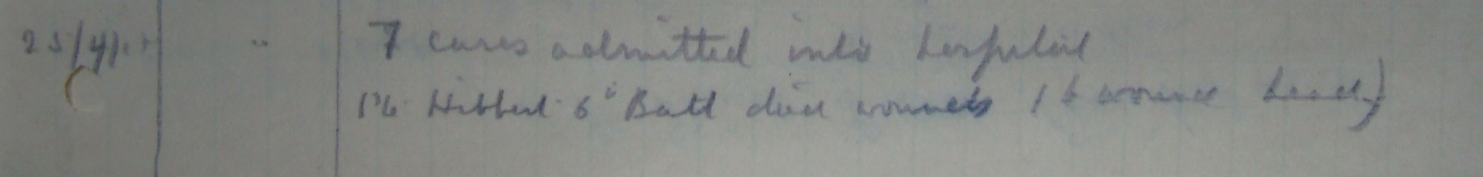 25/4/15 " 7 cases admitted into hospital
Pte Hibbert 6th Batt died wounds (G wound head)